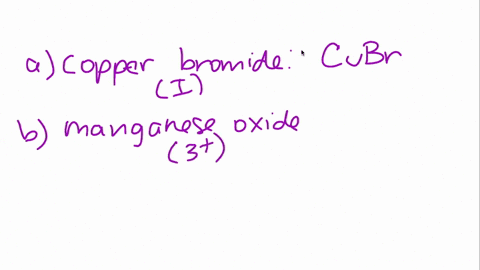 a) Copper bromide: CuBr
(I)
b) manganese oxide
(3+)